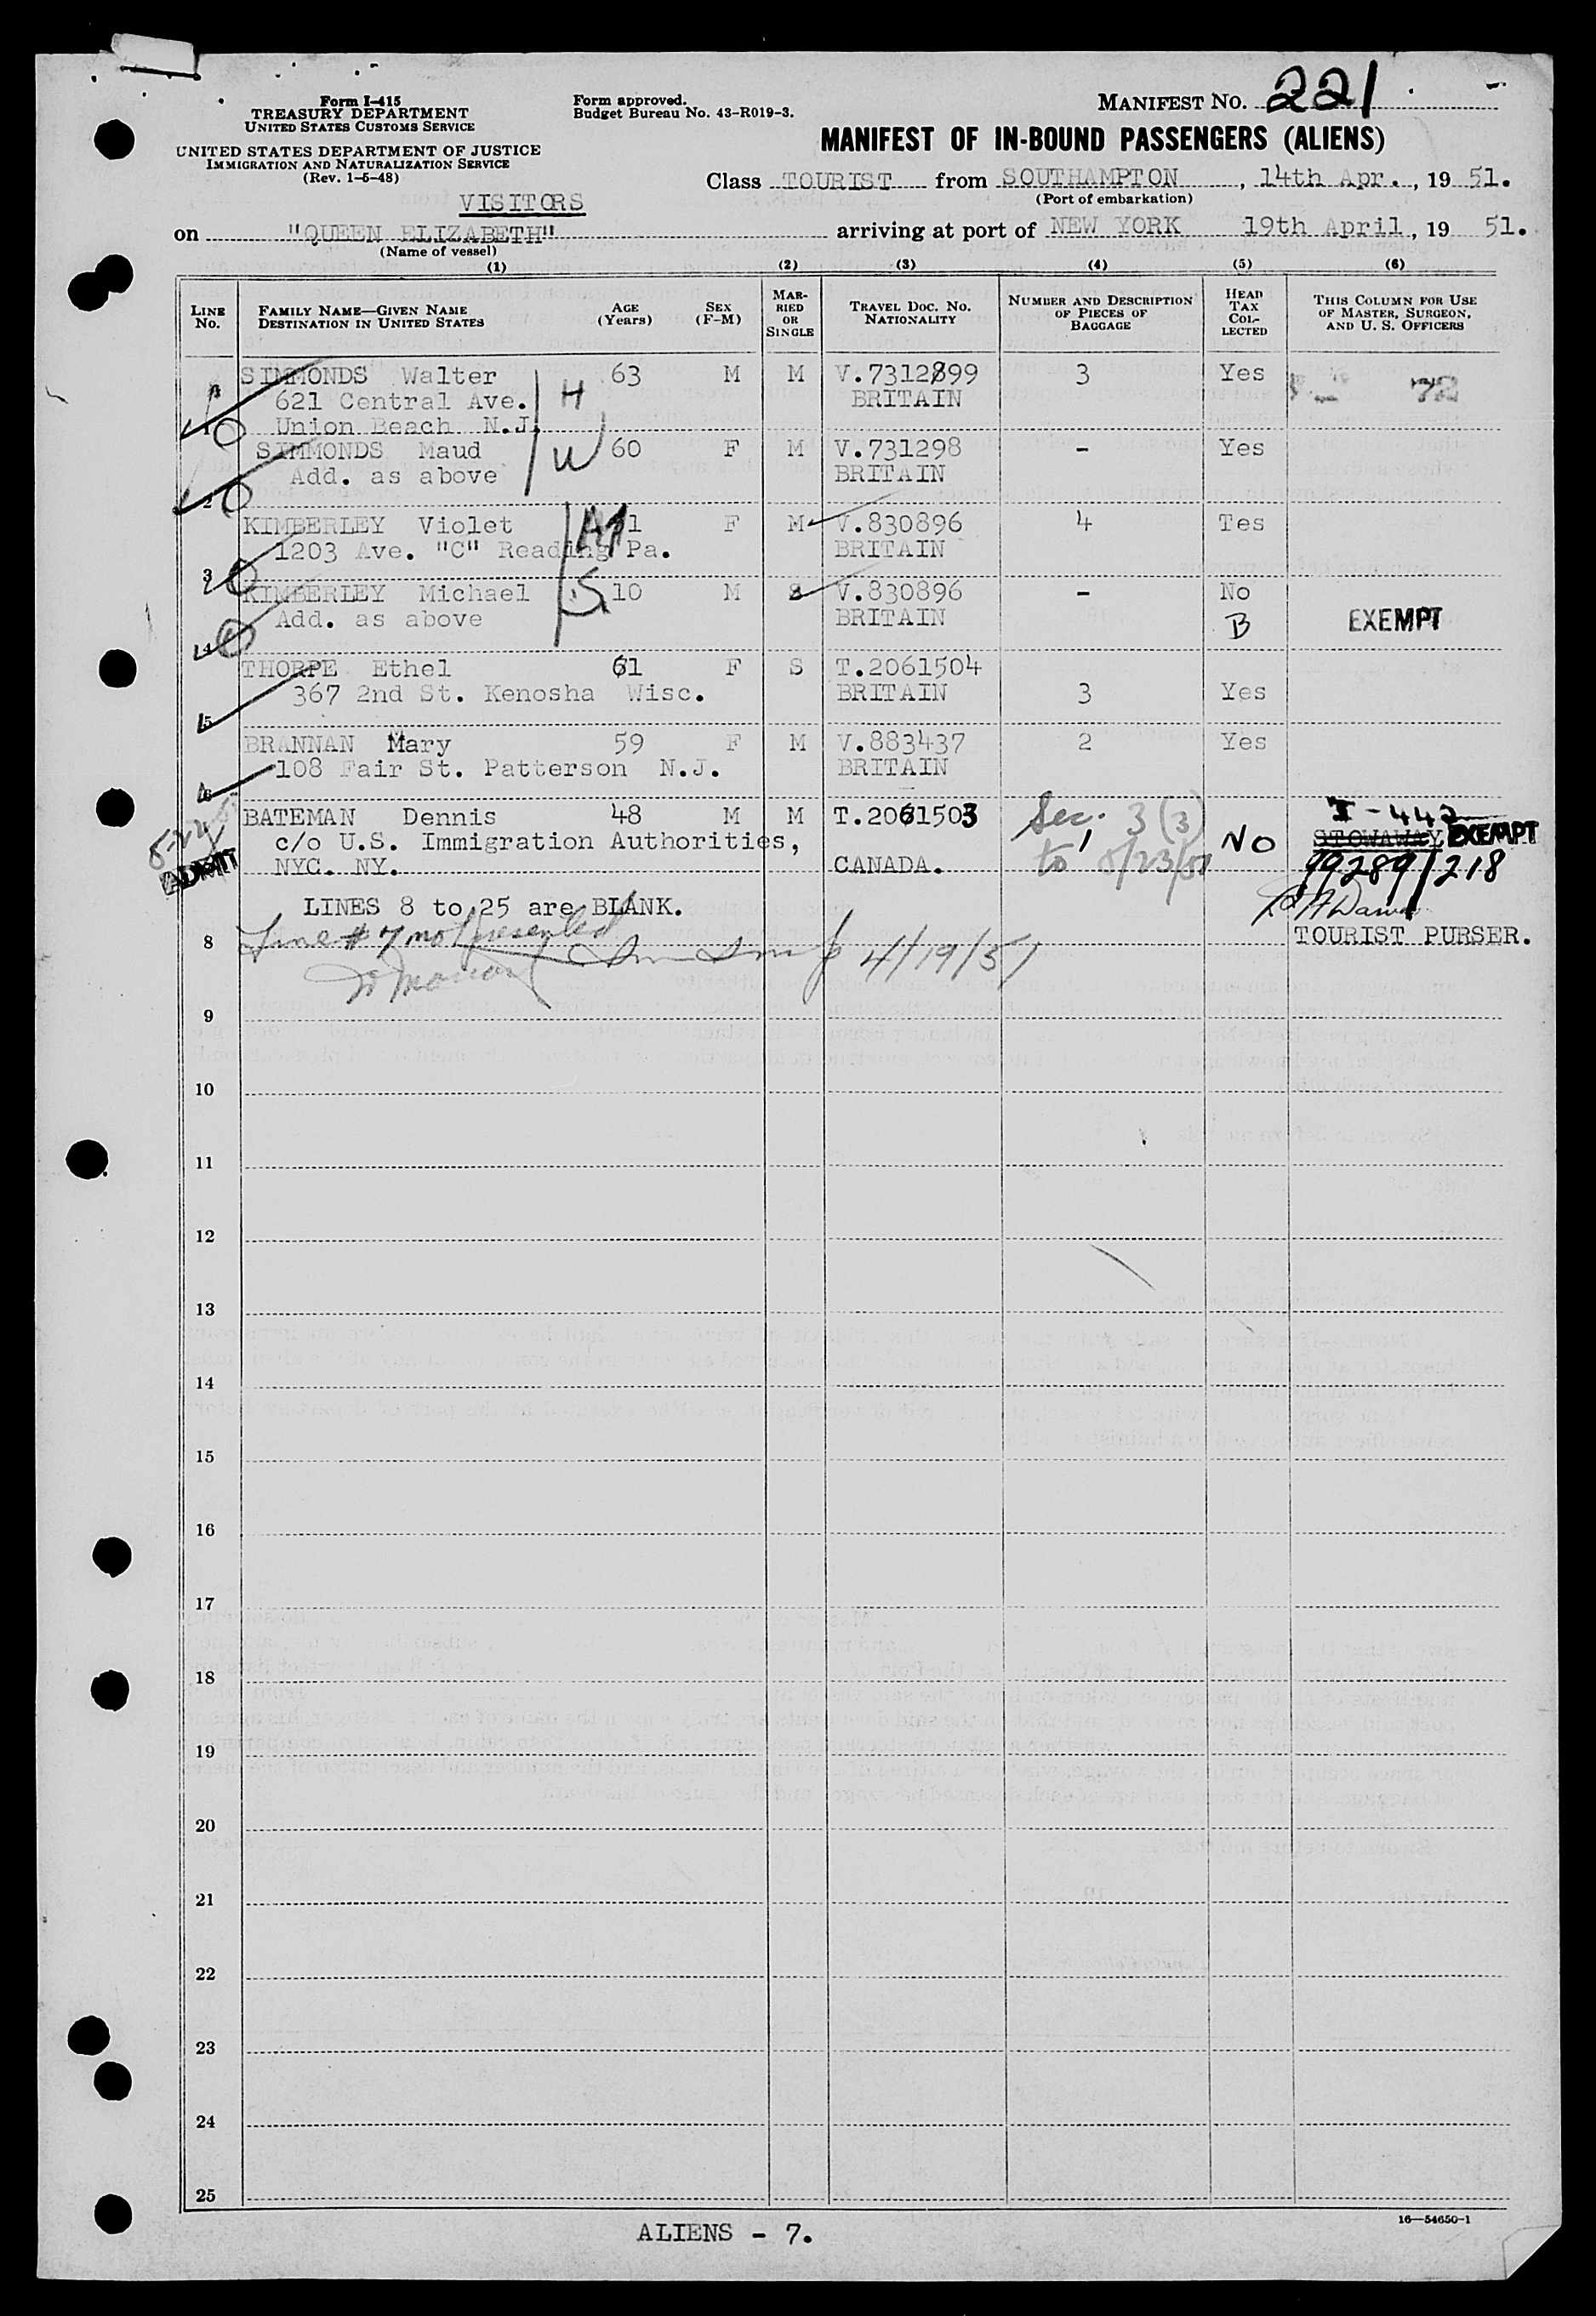 Form I-415
TREASURY DEPARTMENT
UNITED STATES CUSTOMS SERVICE
UNITED STATES DEPARTMENT OF JUSTICE
IMMIGRATION AND NATURALIZATION SERVICE
(Rev. 1-5-48)
Form approved.
Budget Bureau No. 43-R019-3.
MANIFEST NO. 221
MANIFEST OF IN-BOUND PASSENGERS (ALIENS)
Class TOURIST from SOUTHAMPTON, 14th Apr., 19 51.
(Port of embarkation)
VISITORS
on "QUEEN ELIZABETH" arriving at port of NEW YORK 19th April, 19 51.
(Name of vessel)
(1) (2) (3) (4) (5) (6)
LINE No.
FAMILY NAME—GIVEN NAME
DESTINATION IN UNITED STATES
AGE (Years)
SEX (F-M)
MARRIED OR SINGLE
TRAVEL DOC. NO. NATIONALITY
NUMBER AND DESCRIPTION OF PIECES OF BAGGAGE
HEAD TAX COLLECTED
THIS COLUMN FOR USE OF MASTER, SURGEON, AND U. S. OFFICERS
SIMMONDS Walter 63 M M V.7312899 3 Yes 72
621 Central Ave. H BRITAIN
1 Union Beach N.J.
SIMMONDS Maud W 60 F M V.731298 - Yes
Add. as above BRITAIN
2
KIMBERLEY Violet F M V.830896 4 Tes
1203 Ave. "C" Reading Pa. BRITAIN
3
KIMBERLEY Michael S 10 M S V.830896 - No
Add. as above BRITAIN B EXEMPT
4
THORPE Ethel 61 F S T.2061504
367 2nd St. Kenosha Wisc. BRITAIN 3 Yes
5
BRANNAN Mary 59 F M V.883437 2 Yes
108 Fair St. Patterson N.J. BRITAIN
6
BATEMAN Dennis 48 M M T.2061503 Sec. 3 (3) NO I-442
STOWAWAY EXEMPT
c/o U.S. Immigration Authorities,
NYC. NY. CANADA. to 5/23/51 99289/218
ADMIT
LINES 8 to 25 are BLANK.
8 Line # 7 not presented 4/19/51 TOURIST PURSER.
9
10
11
12
13
14
15
16
17
18
19
20
21
22
23
24
25
16—54650-1
ALIENS - 7.